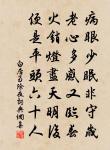 病眼少眠非守歲
老心多感又臨春
火銷燈盡天明後
便是平頭六十人
白居易除夜詞典網